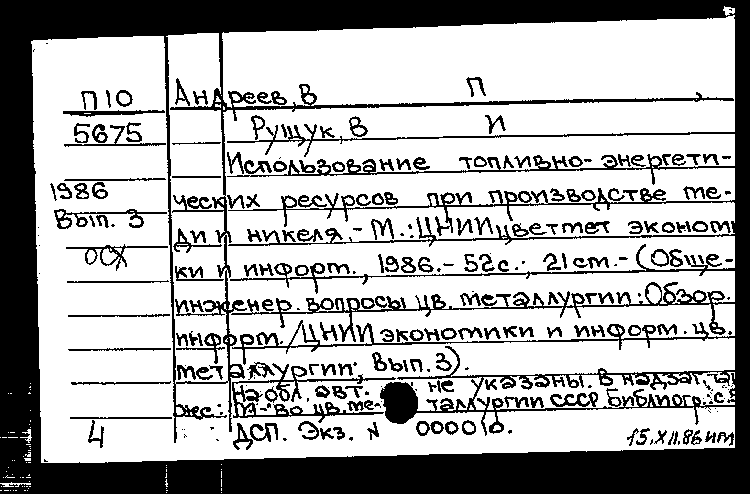 П10 Андреев, В П ,
5675 Рущук, В И
Использование топливно-энергети-
1986 ческих ресурсов при производстве ме-
Вып. 3 ди и никеля.- М.:ЦНИИцветмет эконом
ОСХ ки и информ., 1986.- 52с.; 21см.-(Обще-
инженер. вопросы цв. металлургии:Обзор.
информ./ЦНИИ экономики и информ. цв.
металлургии; Вып.3).
На обл. авт. не указаны. В надзаг.
М-во цв. ме- таллургии СССР. Библиогр.: с.
4 ДСП. Экз. N
15.XII.86